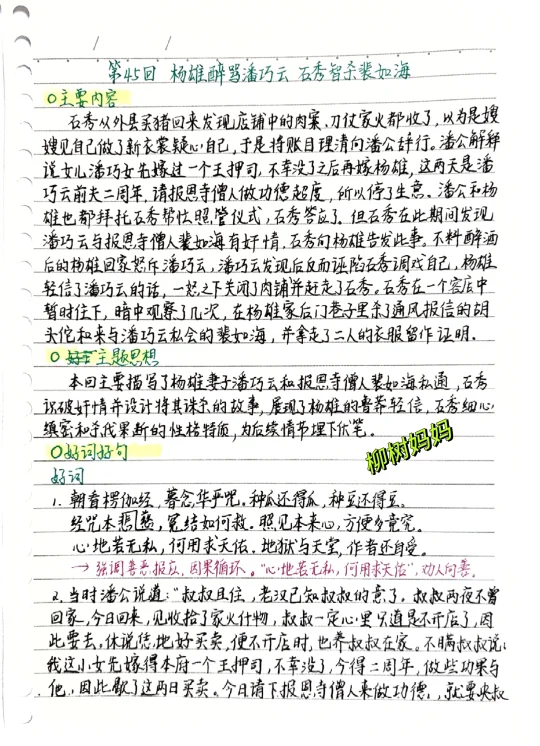 第45回 杨雄醉骂潘巧云 石秀智杀裴如海
○主要内容
石秀从外县买猪回来发现店铺中的肉案、刀仗家火都收了，以为是嫂
嫂见自己做了新衣裳疑心自己，于是将账目理清向潘公辞行。潘公解释
说女儿潘巧云先嫁过一个王押司，不幸没了之后再嫁杨雄，这两天是潘
巧云前夫二周年，请报恩寺僧人做功德超度，所以停了生意。潘公和杨
雄也都拜托石秀帮忙照管仪式，石秀答应了，但石秀在此期间发现
潘巧云与报恩寺僧人裴如海有奸情，石秀向杨雄告发此事。不料醉酒
后的杨雄回家怒斥潘巧云，潘巧云发现后反而诬陷石秀调戏自己，杨雄
轻信了潘巧云的话，一怒之下关闭了肉铺并赶走了石秀。石秀在一个客店中
暂时住下，暗中观察了几次，在杨雄家后门巷子里杀了通风报信的胡
头佗和来与潘巧云私会的裴如海，并拿走了二人的衣服留作证明。
○主题思想
本回主要描写了杨雄妻子潘巧云和报恩寺僧人裴如海私通，石秀
识破奸情并设计将其诛杀的故事，展现了杨雄的鲁莽轻信，石秀细心
缜密和杀伐果断的性格特质，为后续情节埋下伏笔。
柳树妈妈
○好词好句
好词
1. 朝看楞伽经，暮念华严咒。种瓜还得瓜，种豆还得豆。
经咒本慈悲，冤结如何救。照见本来心，方便多竟究。
心地若无私，何用求天佑。地狱与天堂，作者还自受。
→ 强调善恶报应，因果循环。“心地若无私，何用求天佑”，劝人向善。
2. 当时潘公说道：“叔叔且住，老汉已知叔叔的意了。叔叔两夜不曾
回家，今日回来，见收拾了家火什物，叔叔一定心里只道是不开店了，因
此要去。休说恁地好买卖，便不开店时，也养叔叔在家。不瞒叔叔说，
我这小女先嫁得本府一个王押司，不幸没了，今得二周年，做些功果与
他，因此歇了这两日买卖。今日请下报恩寺僧人来做功德，就要央叔